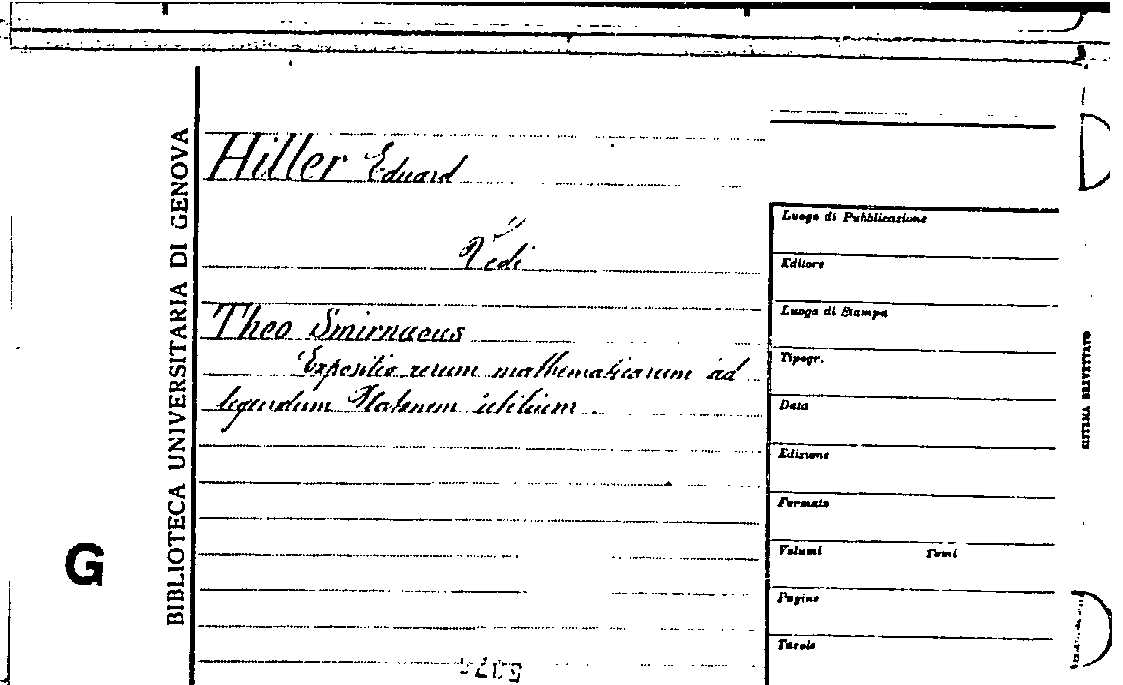 Hiller Eduard
Vedi
Theo Smirnaeus
Expositio rerum mathematicarum ad
legendum Platonem utilium.
BIBLIOTECA UNIVERSITARIA DI GENOVA
G
Luogo di Pubblicazione
Editore
Luogo di Stampa
Tipogr.
Data
Edizione
Formato
Volumi Tomi
Pagine
Tavole
SISTEMA BREVETTATO